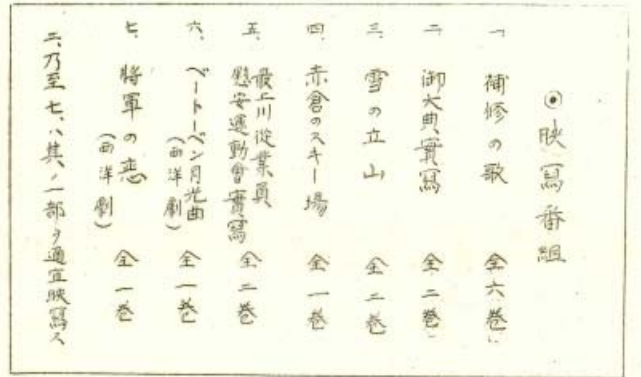 ◉映寫番組
一、補修の歌 全六巻
二、御大典實寫 全二巻
三、雪の立山 全二巻
四、赤倉のスキー場 全一巻
五、最上川從業員慰安運動會實寫 全二巻
六、ベートーベン月光曲(西洋劇) 全一巻
七、將軍の恋(西洋劇) 全一巻
二、乃至七、ハ其ノ一部ヲ適宜映寫ス